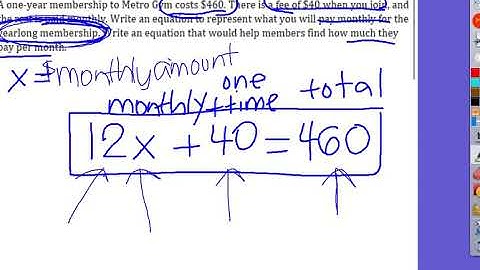 A one-year membership to Metro Gym costs $460. There is a fee of $40 when you join, and
the rest is paid monthly. Write an equation to represent what you will pay monthly for the
yearlong membership. Write an equation that would help members find how much they
pay per month.
x = $monthly amount
one
monthly + time total
12x + 40 = 460